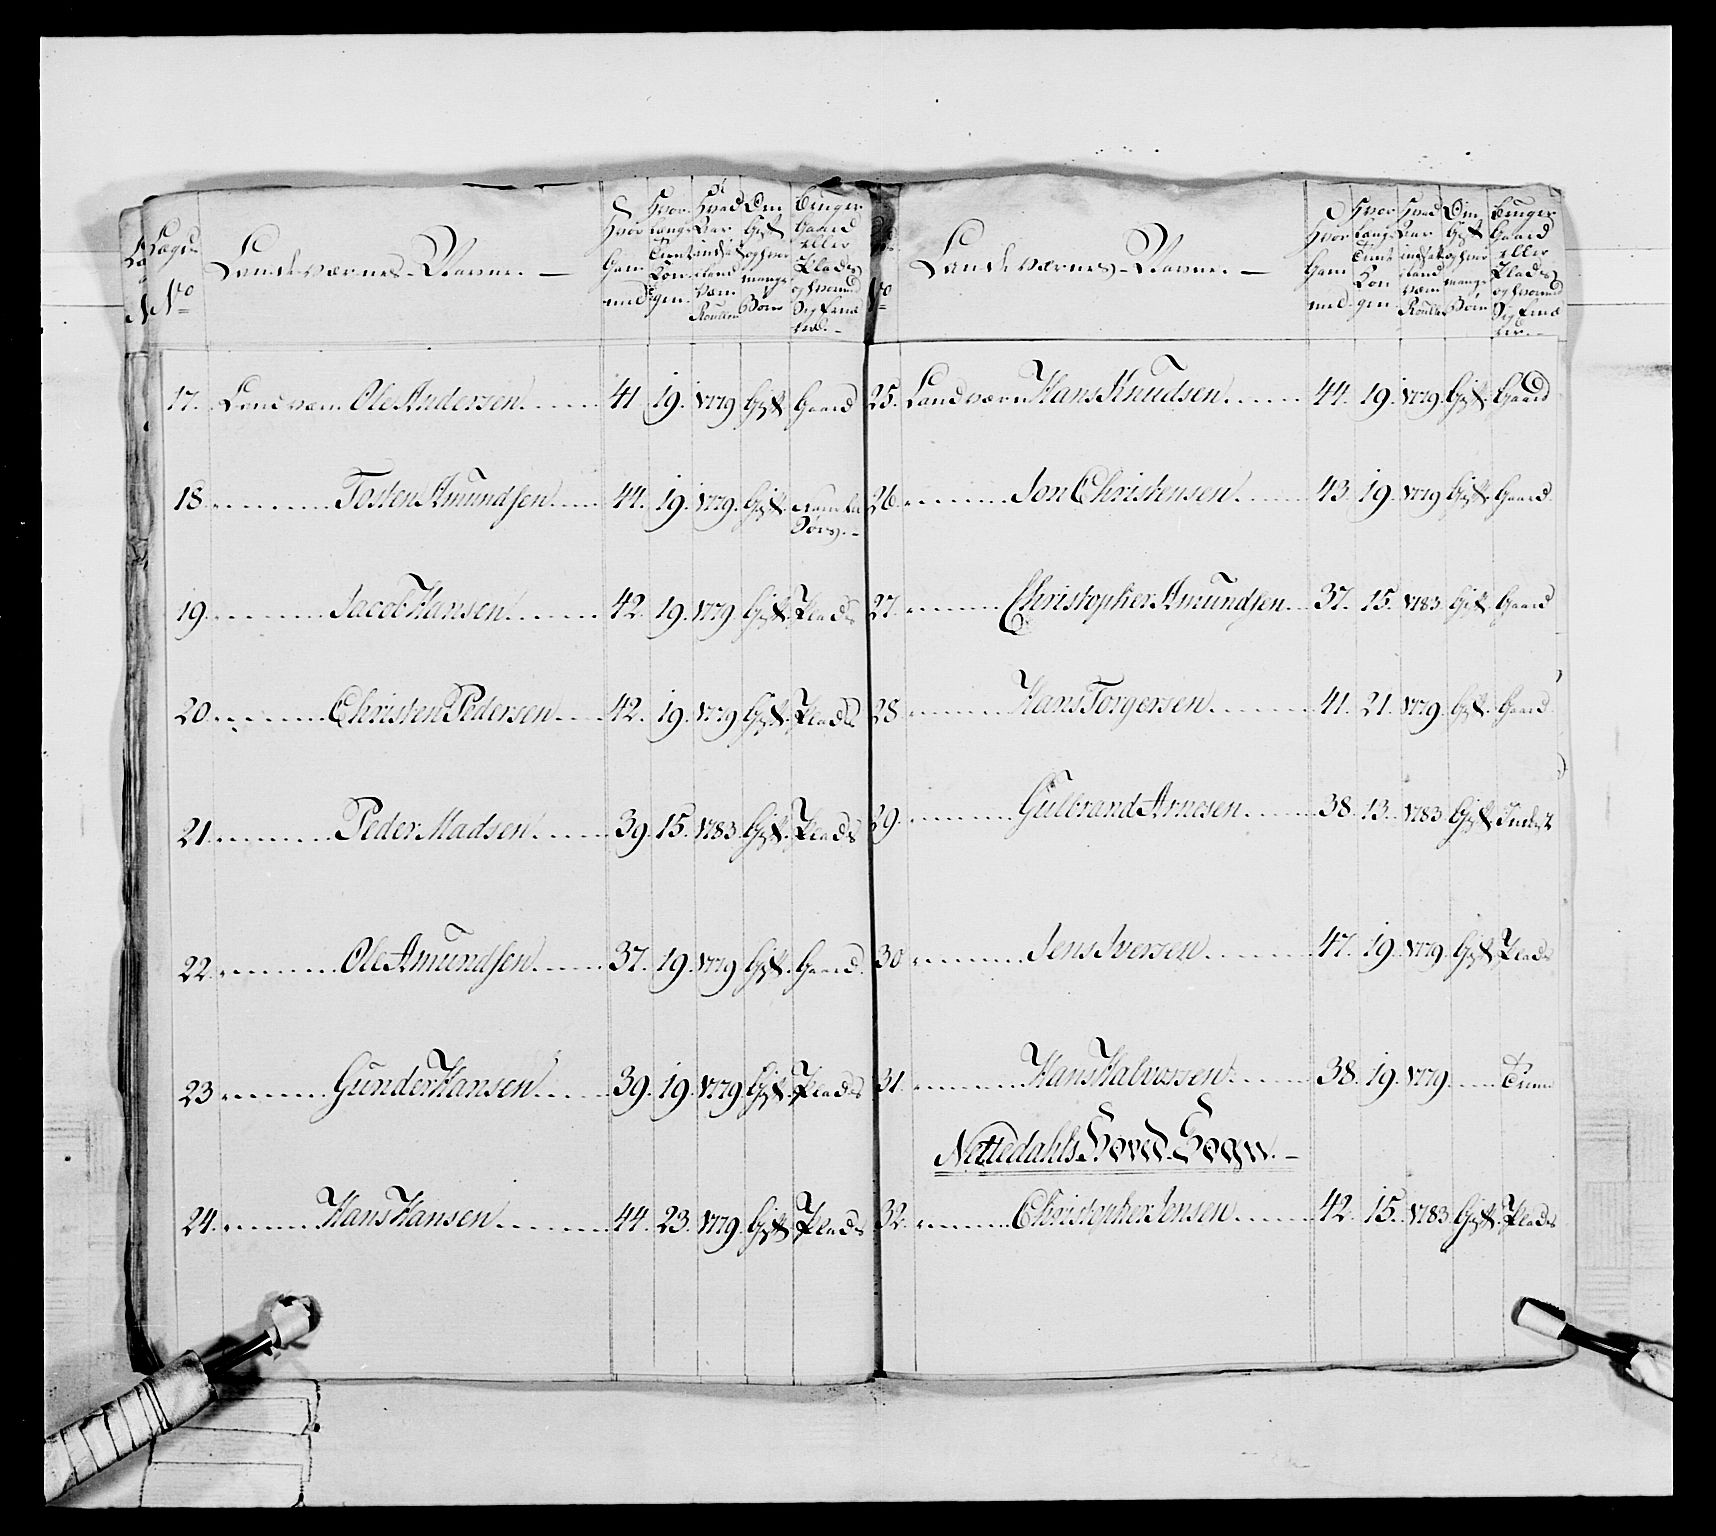 Lægds
No
Landeværnes-Navne. —
Hvor
Gam
mel
Hvor
Længe
Tient
Kon
gen.
Hvad
Aar
indsat
Land
værn
Roullen
Om
Gift
og hvor
mange
Børn
Bruger
Gaard
eller
Plads
og hvormed
Sig Ernæ
rer. –
17. Landværn Ole Andersen 41 19. 1779 Gift Gaard
18 Tosten Amundsen 44. 19. 1779. Gift.
19 Jacob Hansen 42. 19. 1779 Gift Plads
20 Christen Pedersen 42. 19. 1779 Gift. Plads
21 Peder Madsen 39. 15. 1783. Gift. Plads
22 Ole Amundsen 37. 19. 1779 Gift. Gaard.
23 Gunder Hansen 39. 19 1779. Gift. Plads
24. Hans Hansen 44. 23. 1779. Gift Plads
No
Landeværnes-Navne. —
Hvor
Gam
mel
Hvor
Længe
Tient
Kon
gen.
Hvad
Aar
indsat
Land
værn
Roulle
Om
Gift
og hvor
mange
Børn
Bruger
Gaard
eller
Plads
og hvormed
Sig Ernæ
rer. –
25. Landværn Hans Knudsen 44. 19. 1779. Gift. Gaard
26 Jon Christensen 43. 19. 1779 Gift. Gaard
27 Christopher Amundsen 37. 15. 1783. Gift. Gaard
28 Hans Torgersen 41. 21. 1779. Gift. Gaard.
29 Gulbrand Arnesen 38. 13. 1783 Gift
30 Jens Iversen 47. 19. 1779. Gift Plads
31 Hans Halvorsen 38. 19. 1779.
Nittedahls Hoved-Sogn. –
32. Christopher Jensen 42. 15. 1783. Gift. Plads